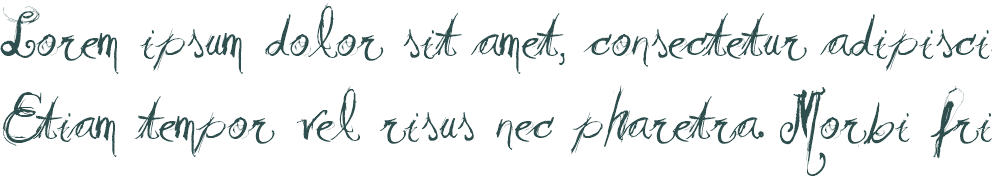 Lorem ipsum dolor sit amet, consectetur adipisci
Etiam tempor vel risus nec pharetra. Morbi fri